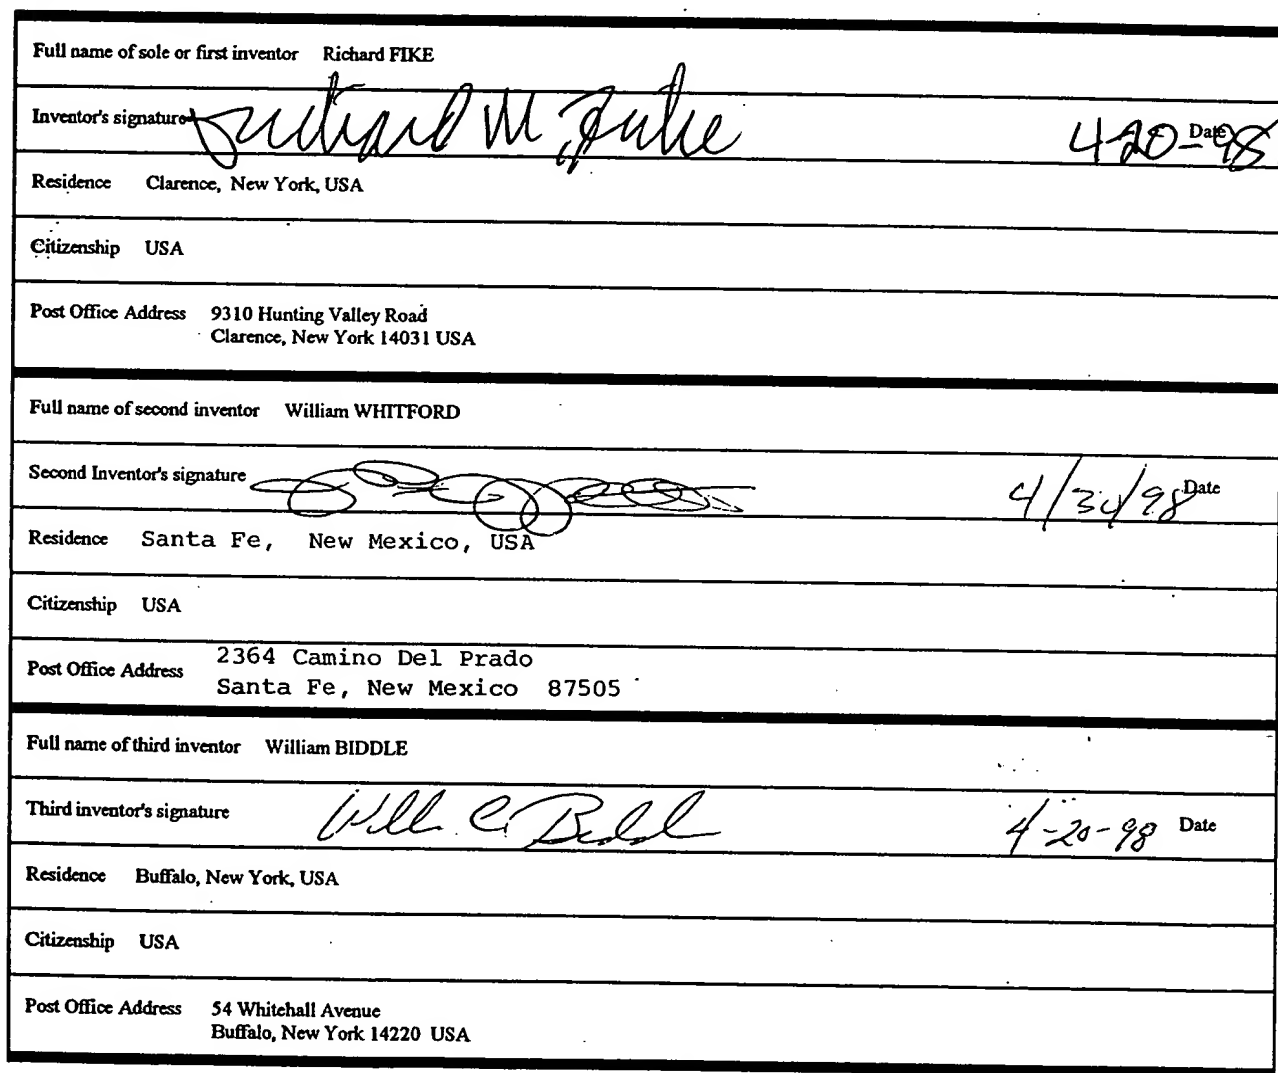 Full name of sole or first inventor Richard FIKE
Inventor's signature Richard M Fike 4-20-98 Date
Residence Clarence, New York, USA
Citizenship USA
Post Office Address 9310 Hunting Valley Road
Clarence, New York 14031 USA
Full name of second inventor William WHITFORD
Second Inventor's signature 4/30/98 Date
Residence Santa Fe, New Mexico, USA
Citizenship USA
Post Office Address 2364 Camino Del Prado
Santa Fe, New Mexico 87505
Full name of third inventor William BIDDLE
Third inventor's signature Will C. Biddl 4-20-98 Date
Residence Buffalo, New York, USA
Citizenship USA
Post Office Address 54 Whitehall Avenue
Buffalo, New York 14220 USA